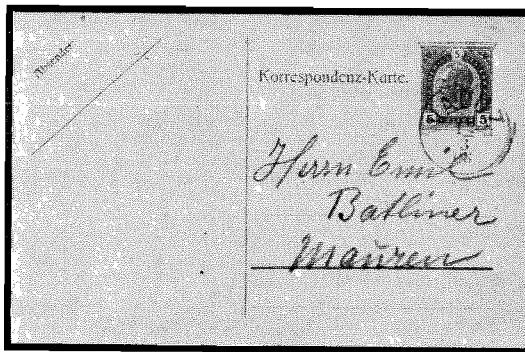 Absender
Korrespondenz-Karte.
5
5 5
Herrn Emil
Batliner
Mauren